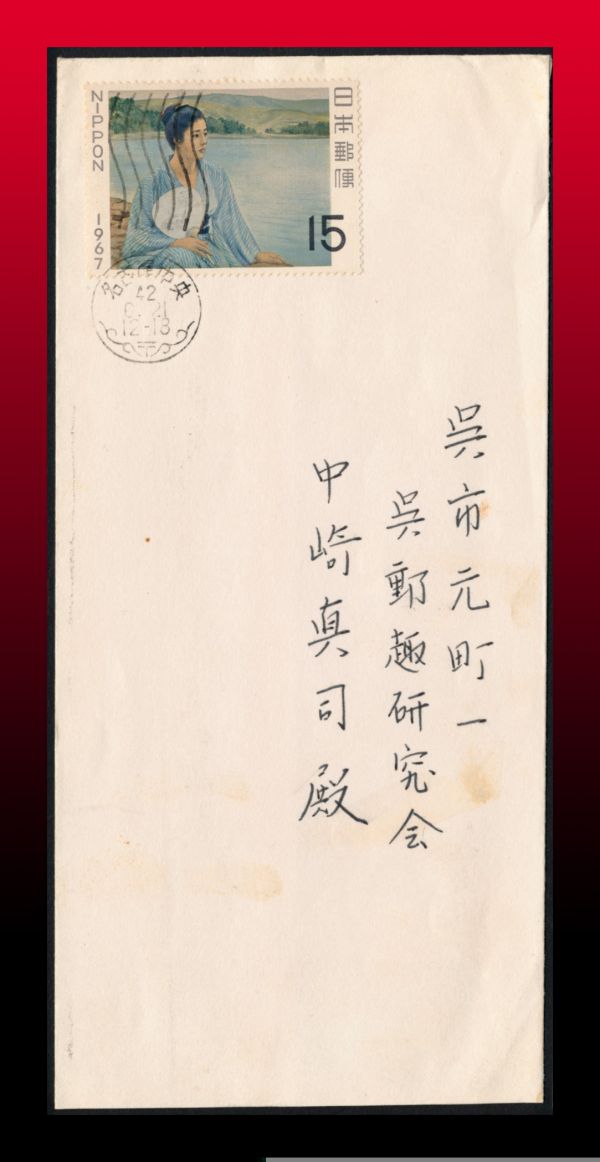 NIPPON 1967
日本郵便
15
名古屋中央
42
21
12-18
呉市元町一
呉郵趣研究会
中崎真司殿